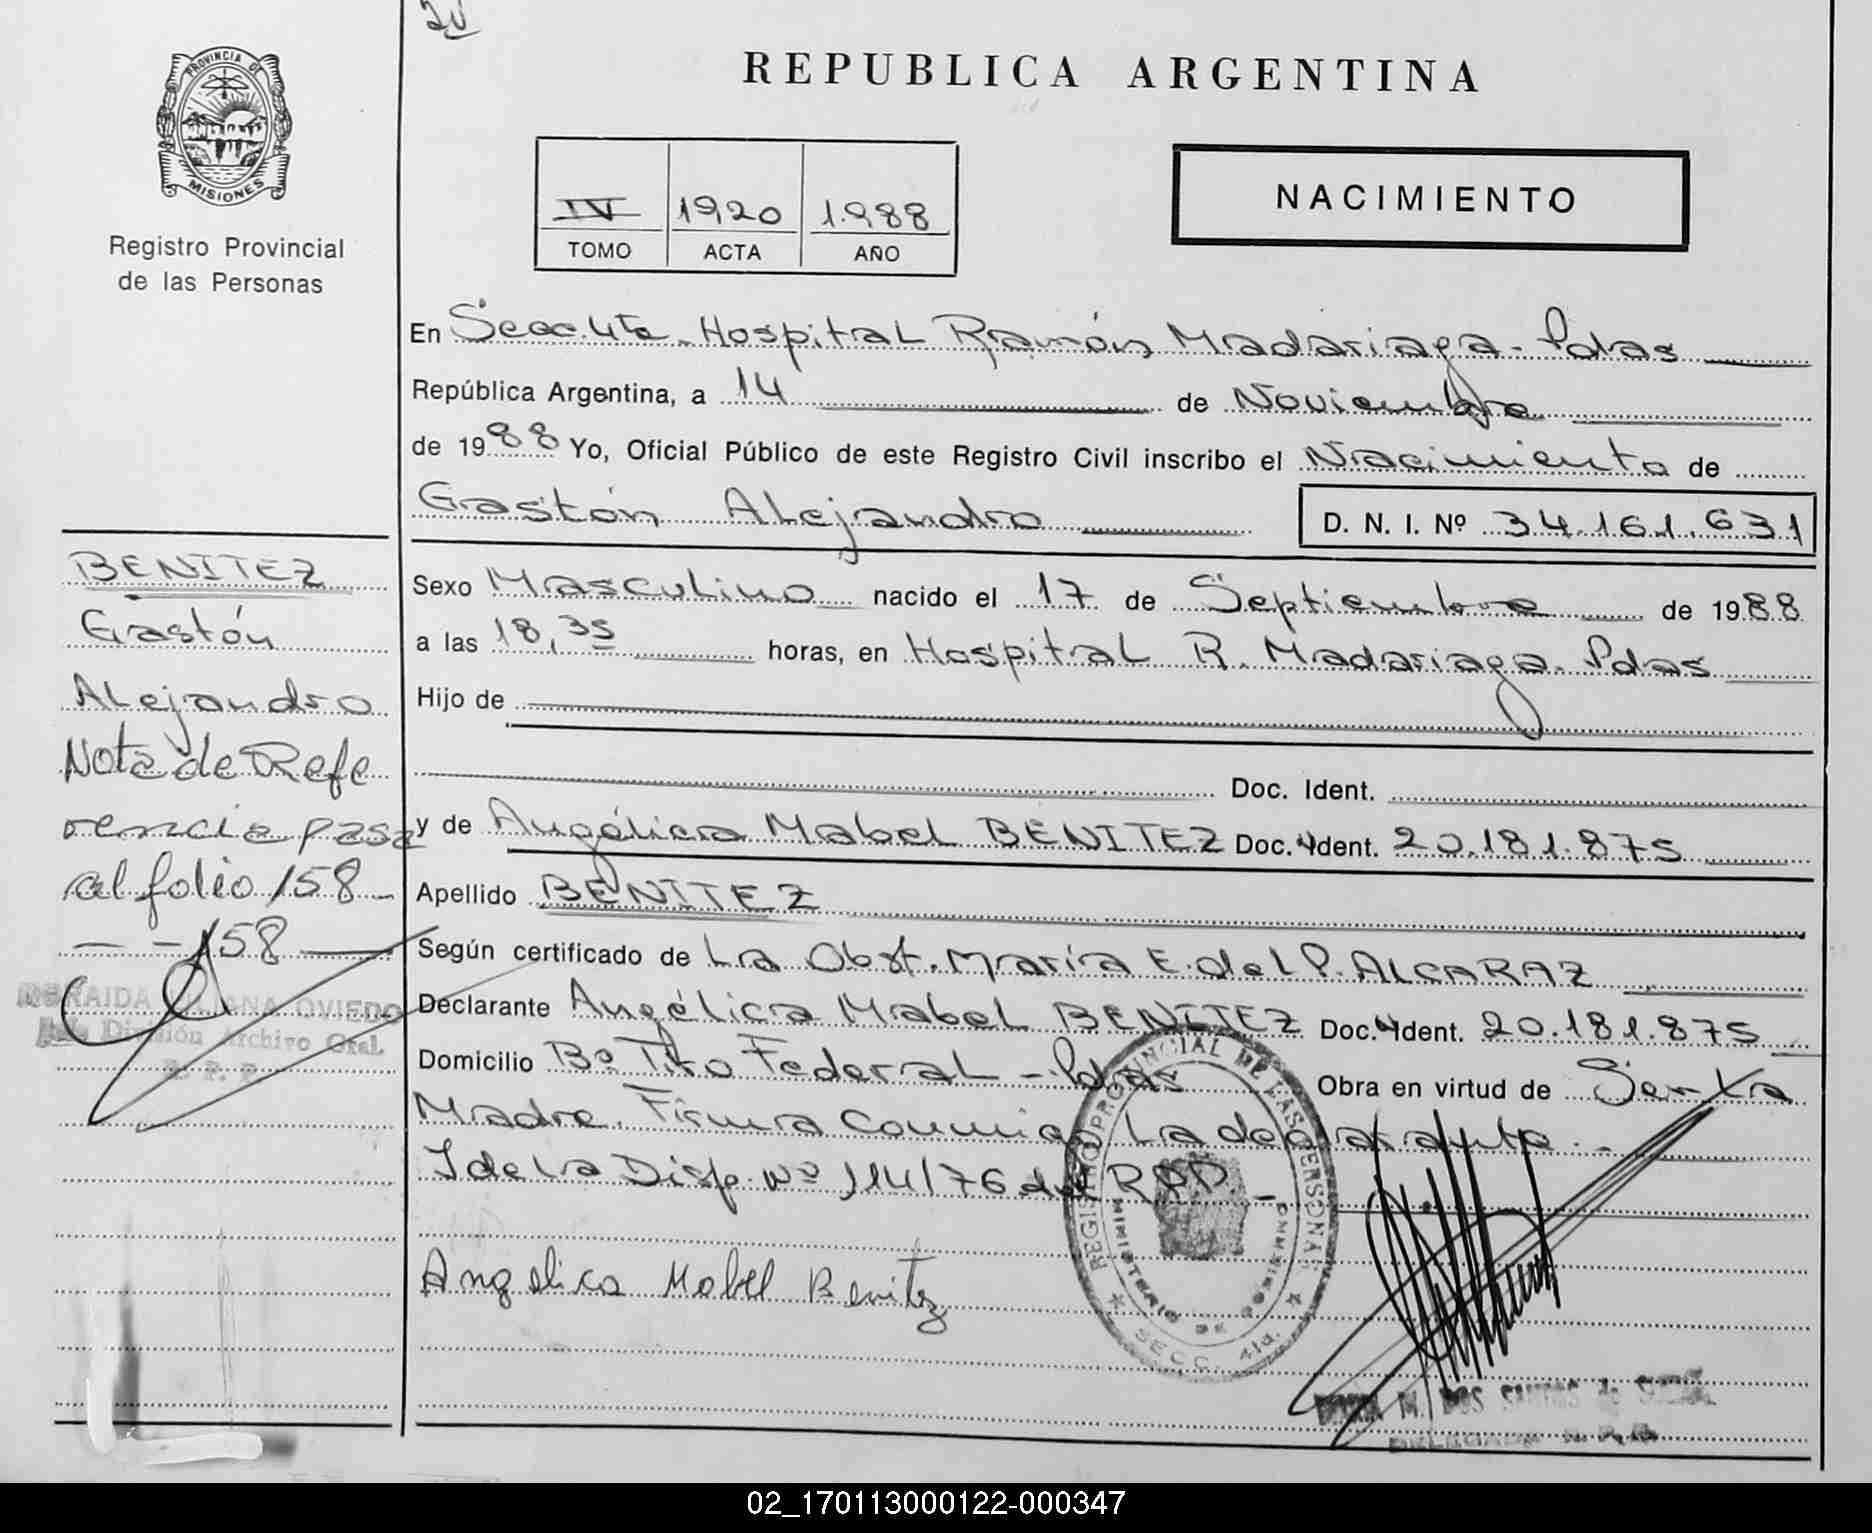 20
PROVINCIA DE
MISIONES
Registro Provincial
de las Personas
REPUBLICA ARGENTINA
IV 1920 1.988
TOMO ACTA AÑO
NACIMIENTO
En Secc. 4ta. Hospital Ramón Madariaga - Pdas
República Argentina, a 14 de Noviembre
de 1988 Yo, Oficial Público de este Registro Civil inscribo el Nacimiento de
Gastón Alejandro
D. N. I. Nº 34.161.631
Sexo Masculino nacido el 17 de Septiembre de 1988
a las 18,35 horas, en Hospital R. Madariaga. Pdas
Hijo de
Doc. Ident.
y de Angélica Mabel BENITEZ Doc. Ident. 20.181.875
Apellido BENITEZ
Según certificado de La Obst. María E. del P. ALCARAZ
Declarante Angélica Mabel BENITEZ Doc. Ident. 20.181.875
Domicilio Bº Tiro Federal - Pdas Obra en virtud de Ser La
Madre. Firma Conmigo La declarante.-
I de la Disp. Nº 114/76 del RPP -
Angelica Mabel Benitez
REGISTRO PROVINCIAL DE LAS PERSONAS
MINISTERIO DE GOBIERNO
SECC. 4ta.
M. DOS SANTOS de
DELEGADA R. P. P.
BENITEZ
Gastón
Alejandro
Nota de Refe
rencia pasa
al folio 158 -
- - 158 -
LILIANA OVIEDO
División Archivo Gral.
R. P. P.
02_170113000122-000347